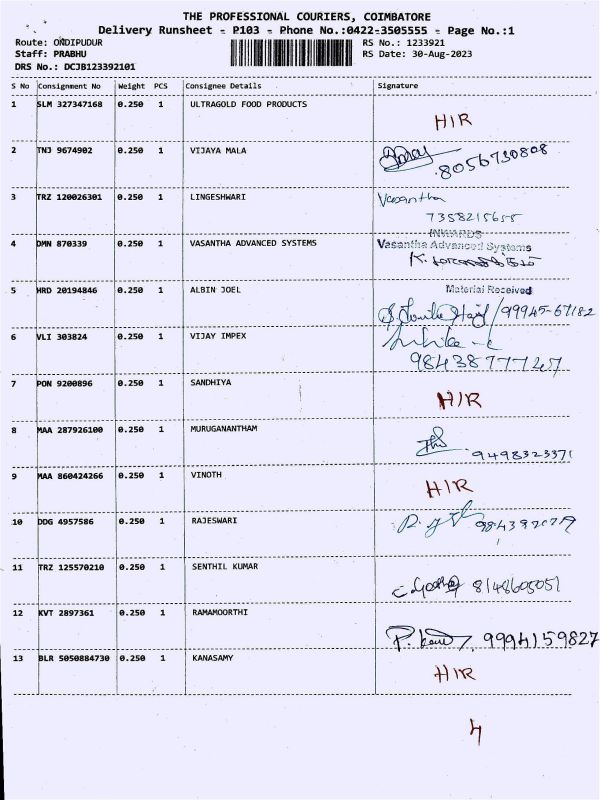 THE PROFESSIONAL COURIERS, COIMBATORE
Delivery Runsheet - P103 - Phone No.:0422-3505555 - Page No.:1
Route: ONDIPUDUR RS No.: 1233921
Staff: PRABHU RS Date: 30-Aug-2023
DRS No.: DCJB123392101
S No Consignment No Weight PCS Consignee Details Signature
1 SLM 327347168 0.250 1 ULTRAGOLD FOOD PRODUCTS
HIR
2 TNJ 9674902 0.250 1 VIJAYA MALA
8056730808
3 TRZ 120026301 0.250 1 LINGESHWARI Vasantha
7358215655
INWARDS
4 DMN 870339 0.250 1 VASANTHA ADVANCED SYSTEMS Vasantha Advanced Systems
5 HRD 20194846 0.250 1 ALBIN JOEL Material Received
99945-67182
6 VLI 303824 0.250 1 VIJAY IMPEX
7 PON 9200896 0.250 1 SANDHIYA
HIR
8 MAA 287926100 0.250 1 MURUGANANTHAM
9498323371
9 MAA 860424266 0.250 1 VINOTH
HIR
10 DDG 4957586 0.250 1 RAJESWARI
11 TRZ 125570210 0.250 1 SENTHIL KUMAR
8148605051
12 KVT 2897361 0.250 1 RAMAMOORTHI
9994159827
13 BLR 5050884730 0.250 1 KANASAMY
HIR
4